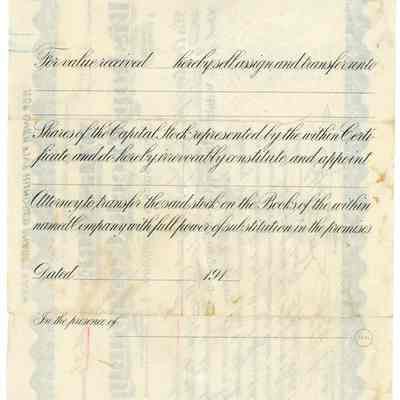 For value received hereby sell, assign and transfer unto
Shares of the Capital Stock represented by the within Certi
ficate and do hereby irrevocably constitute and appoint
Attorney to transfer the said stock on the Books of the within
named Company with full power of substitution in the premises
Dated 191
In the presence of